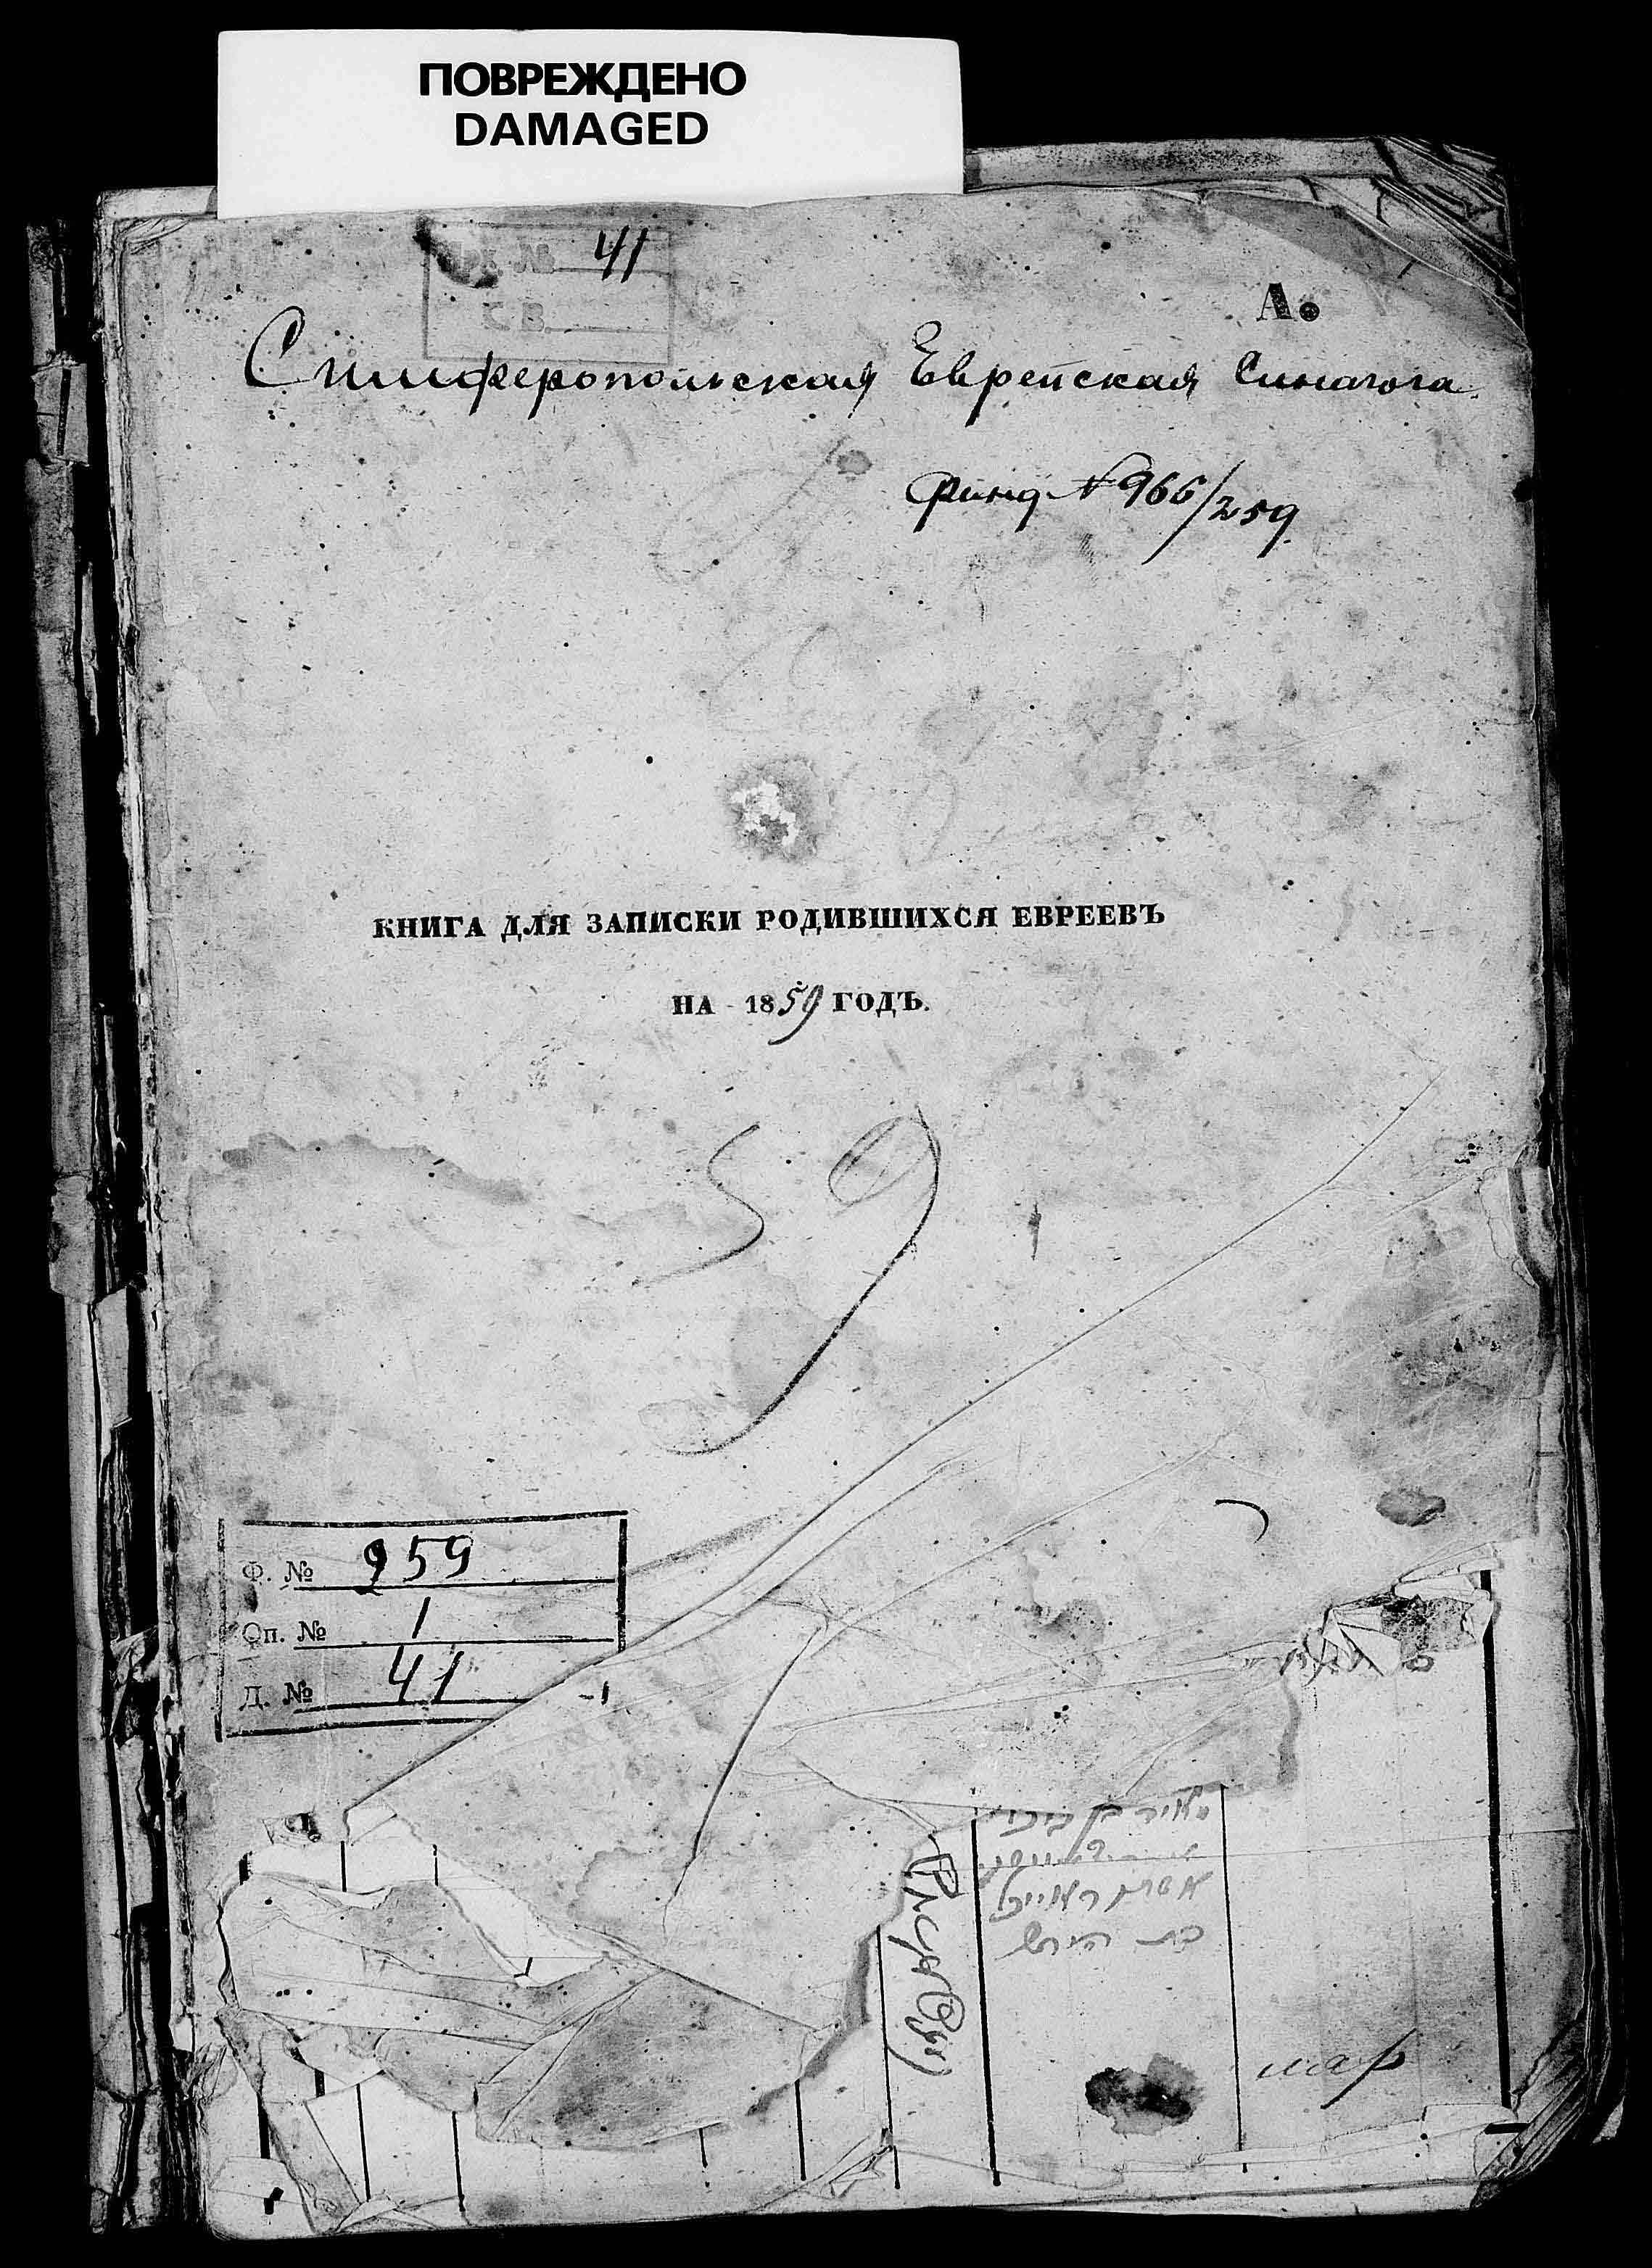 ПОВРЕЖДЕНО
DAMAGED
№ 41
А.
Симферопольская Еврейская Синагога.
Фонд № 966/259.
КНИГА ДЛЯ ЗАПИСКИ РОДИВШИХСЯ ЕВРЕЕВЪ
НА 1859 ГОДЪ.
59
Ф. № 259
Оп. № 1
Д. № 41
מאיר בן
בת הירש
мар